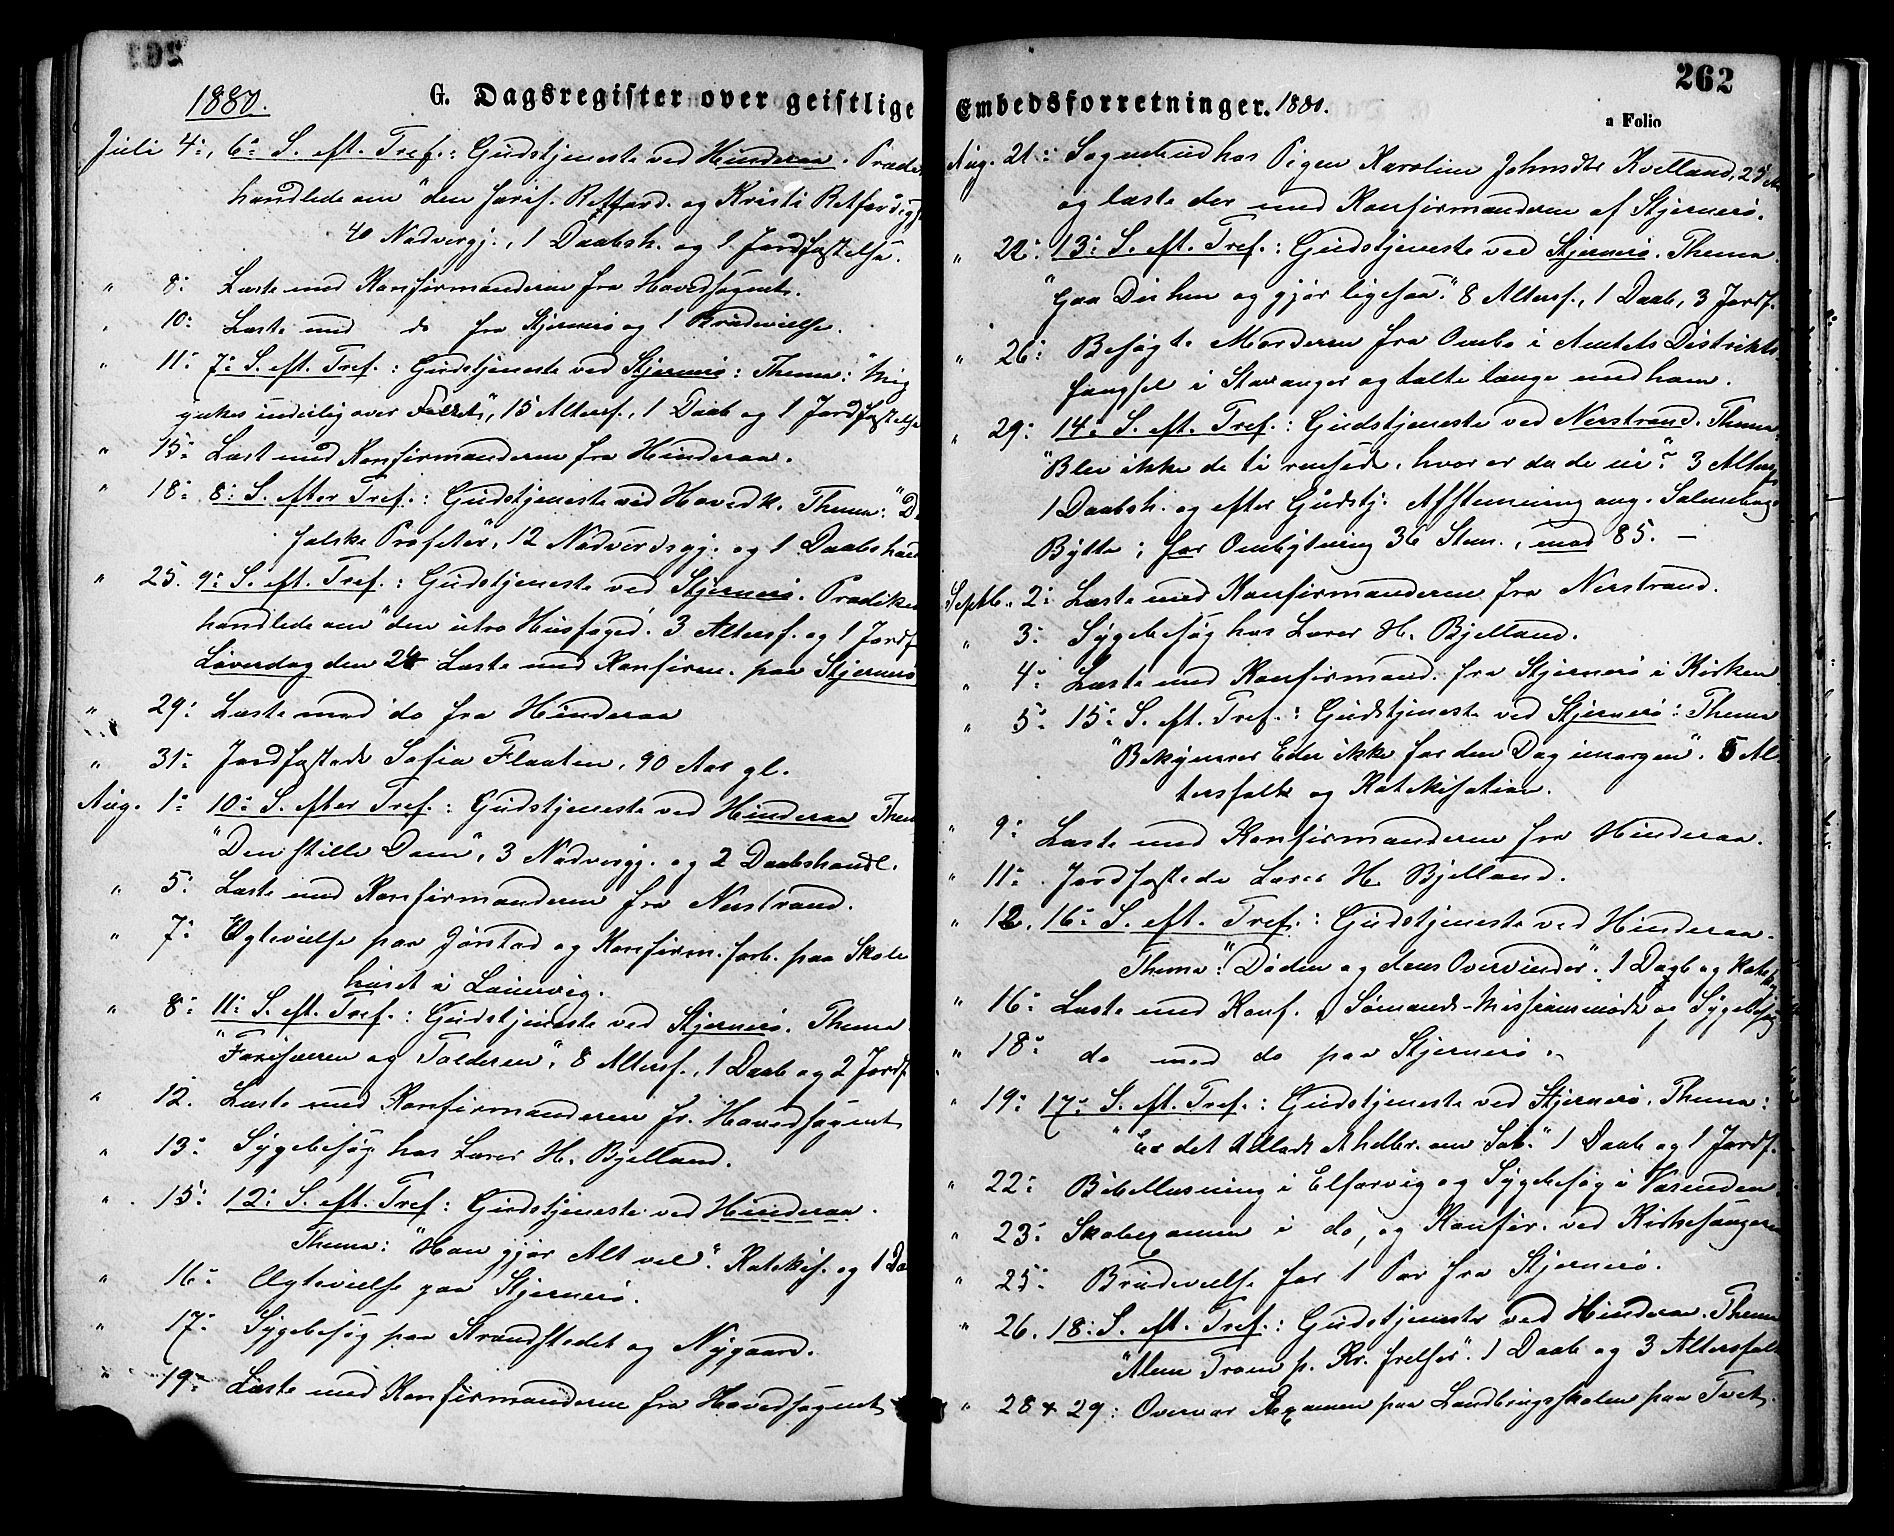 262
1880. G. Dagsregister over geistlige Embedsforretninger. 1880.
a Folio
Juli 4:, 6: S. eft. Tref.: Gudstjeneste ved Hinderaa. Præde
handlede om "den faris. Retfærd. og Kristi Retfærdigh
40 Nadvergj., 1 Daabsh. og 1 Jordfæstelse.
" 8: Læste med Konfirmanderne fra Hovedsognet.
" 10: Læste med do fra Stjernerø og 1 Brudevielse.
" 11: 7: S. eft. Tref.: Gudstjeneste ved Stjernerø: Thema: "Mig
ynkes inderlig over Folket", 15 Altersf., 1 Daab og 1 Jordfæstelse
" 15: Læst med Konfirmanderne fra Hinderaa.
" 18: 8: S. efter Tref.: Gudstjeneste ved Hovedk. Thema: "De
falske Profeter", 12 Nadverdsgj. og 1 Daabshand
" 25. 9: S. eft. Tref.: Gudstjeneste ved Stjernerø. Prædiken
handlede om "den utro Husfoged". 3 Altersf. og 1 Jordf
Løverdag den 24 Læste med Konfirm. paa Stjernerø
" 29: Læste med do fra Hinderaa
" 31: Jordfæstede Sofia Flaaten, 90 Aar gl.
Aug. 1: 10: S. efter Tref.: Gudstjeneste ved Hinderaa Them
"Den stille Dom", 3 Nadvergj. og 2 Daabshandl.
" 5: Læste med Konfirmanderne fra Nerstrand.
" 7: Ægtevielse paa Jørstad og Konfirm.forb. paa Skole
huset i Leiervig.
" 8: 11: S. eft. Tref.: Gudstjeneste ved Stjernerø. Thema
"Farisæeren og Tolderen", 8 Altersf., 1 Daab og 2 Jordf
" 12. Læste med Konfirmanderne fr. Hovedsognet
" 13: Sygebesøg hos Lærer H. Bjelland.
" 15: 12: S. eft. Tref: Gudstjeneste ved Hinderaa.
Thema: "Han gjør Alt vel". Katekis. og 1 Da
" 16: Ægtevielse paa Stjernerø.
" 17: Sygebesøg paa Strandstedet og Nygaard.
" 19: Læste med Konfirmanderne fra Hovedsognet
Aug. 21: Sognebud hos Pigen Karoline Johnsdtr Kvelland,
og læste der med Konfirmanderne af Stjernerø.
" 22: 13: S. eft. Tref.: Gudstjeneste ved Stjernerø. Thema
"Gaa Du hen og gjør ligesaa". 8 Altersf., 1 Daab, 3 Jordf.
" 26: Besøgte Morderen fra Ombo i Amtets Distrikts
fængsel i Stavanger og talte længe med ham.
" 29: 14: S. eft. Tref.: Gudstjeneste ved Nerstrand. Thema
"Blev ikke de ti rensede, hvor er da de ni"? 3 Altersg
1 Daabsh. og efter Gudstj. Afstemning ang. Salmebogs
Bytte; for Ombytning 36 Stem., mod 85. —
Septb. 2: Læste med Konfirmanderne fra Nerstrand.
" 3: Sygebesøg hos Lærer H. Bjelland.
" 4: Læste med Konfirmand. fra Stjernerø i Kirken
" 5: 15: S. eft. Tref.: Gudstjeneste ved Stjernerø: Thema
"Bekymrer Eder ikke for den Dag imorgen". 5 Al-
tersfolk og Katekisation.
" 9: Læste med Konfirmanderne fra Hinderaa.
" 11: Jordfæstede Lærer H. Bjelland.
" 12. 16: S. eft. Tref.: Gudstjeneste ved Hinderaa.
Thema: "Døden og dens Overvinder". 1 Daab og Katek
" 16: Læste med Konf. Sømands-Missionsmøde og Sygebesøg
" 18: do med do paa Stjernerø.
" 19: 17: S. eft. Tref.: Gudstjeneste ved Stjernerø. Thema:
"Er det tilladt at helbr. om Sab." 1 Daab og 1 Jordf.
" 22: Bibellæsning i Elfarvig og Sygebesøg i
" 23: Skoleexamen i do, og Konfir. ved Kirkesangeren
" 25: Brudevielse for 1 Par fra Stjernerø.
" 26. 18: S. eft. Tref.: Gudstjeneste ved Hinderaa. Thema
"Alene Troen p. Kr. frelser". 1 Daab og 3 Altersfolk
" 28 & 29: Overvar Examen paa Landbrugsskolen paa Tveit.